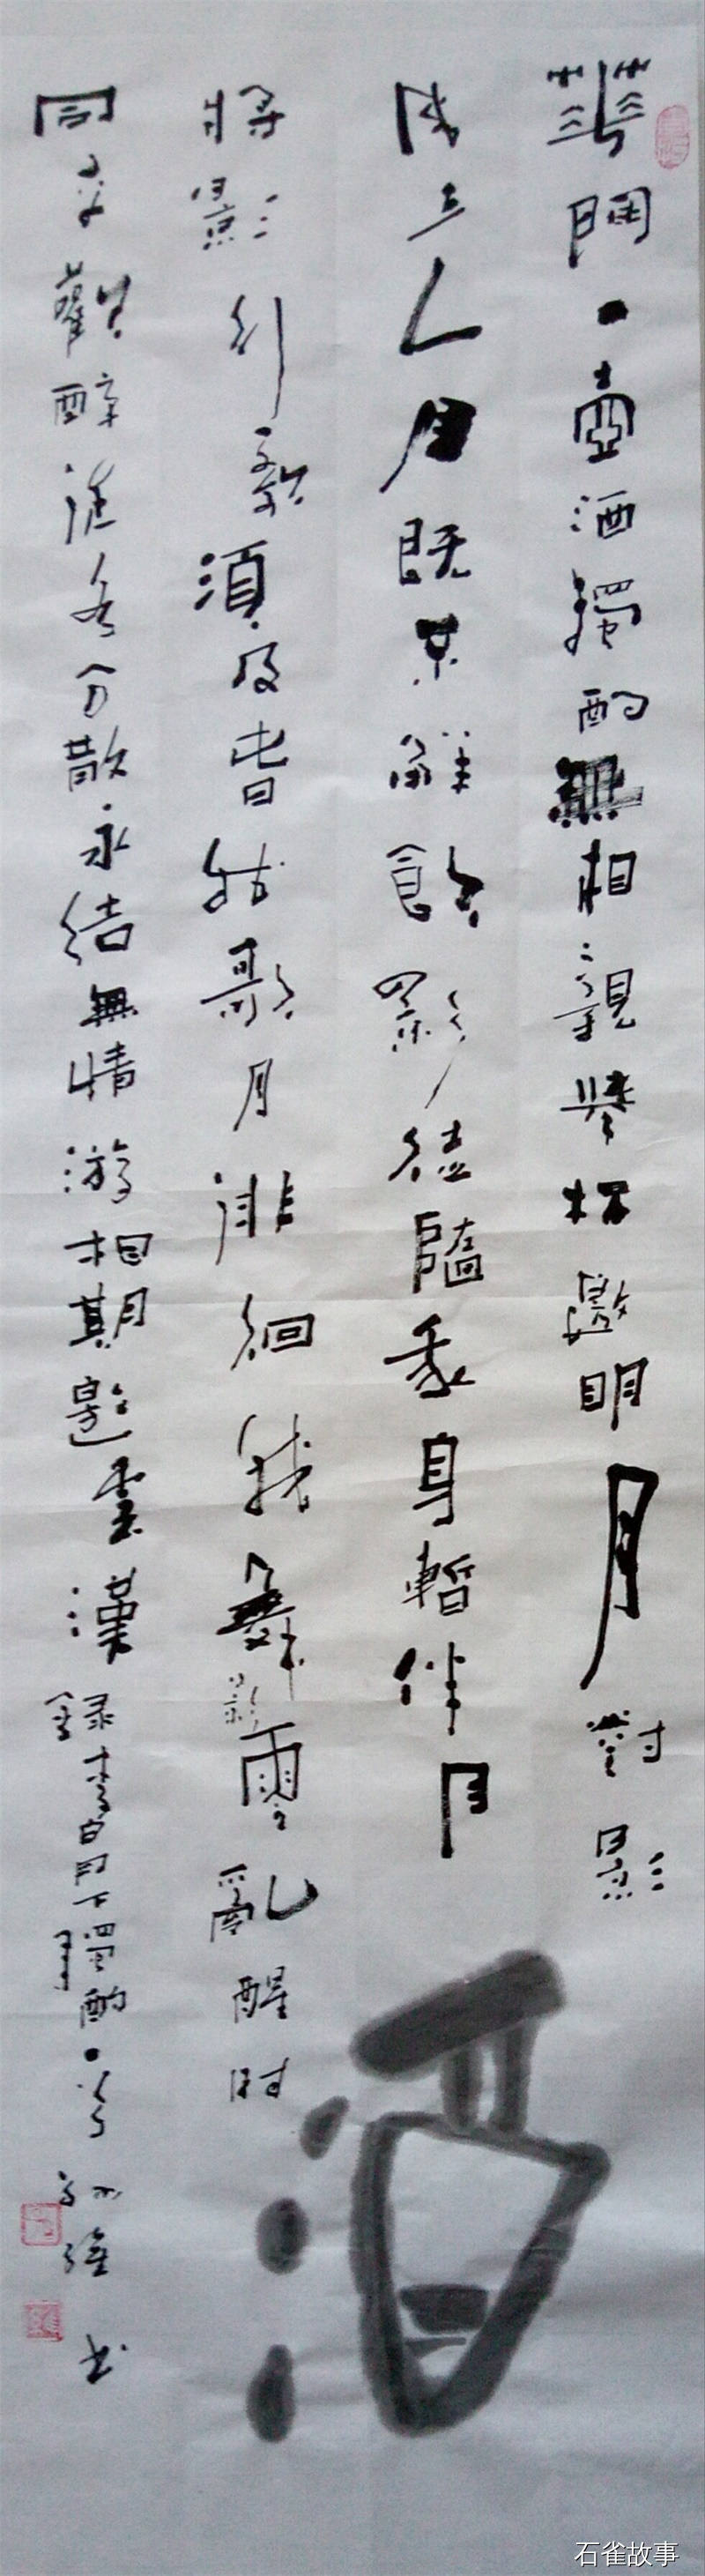 華閒一壺酒獨酌無相親舉杯邀明月對影
成三人月既不解飲影徒隨我身暫伴月
將影行樂須及春我歌月徘徊我舞影零亂醒時
同交歡醉後各分散永結無情游相期邈雲漢
錄李白月下獨酌一首 書
酒
石雀故事